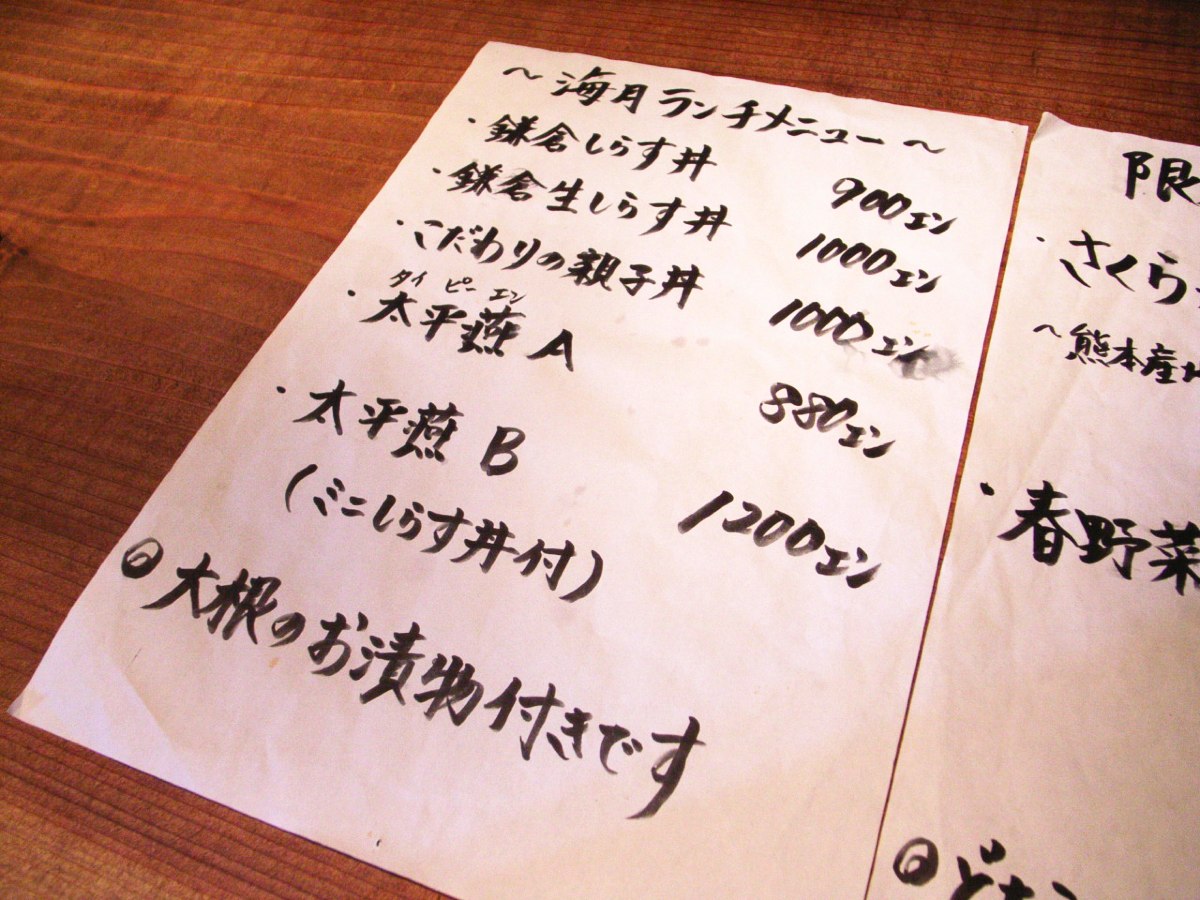 ～海月ランチメニュー～
・鎌倉しらす丼 900エン
・鎌倉生しらす丼 1000エン
・こだわりの親子丼 1000エン
タイ ピー エン
・太平燕 A 880エン
・太平燕 B 1200エン
(ミニしらす丼付)
◎大根のお漬物付きです
限
・さくら
～熊本産
・春野菜
◎どち